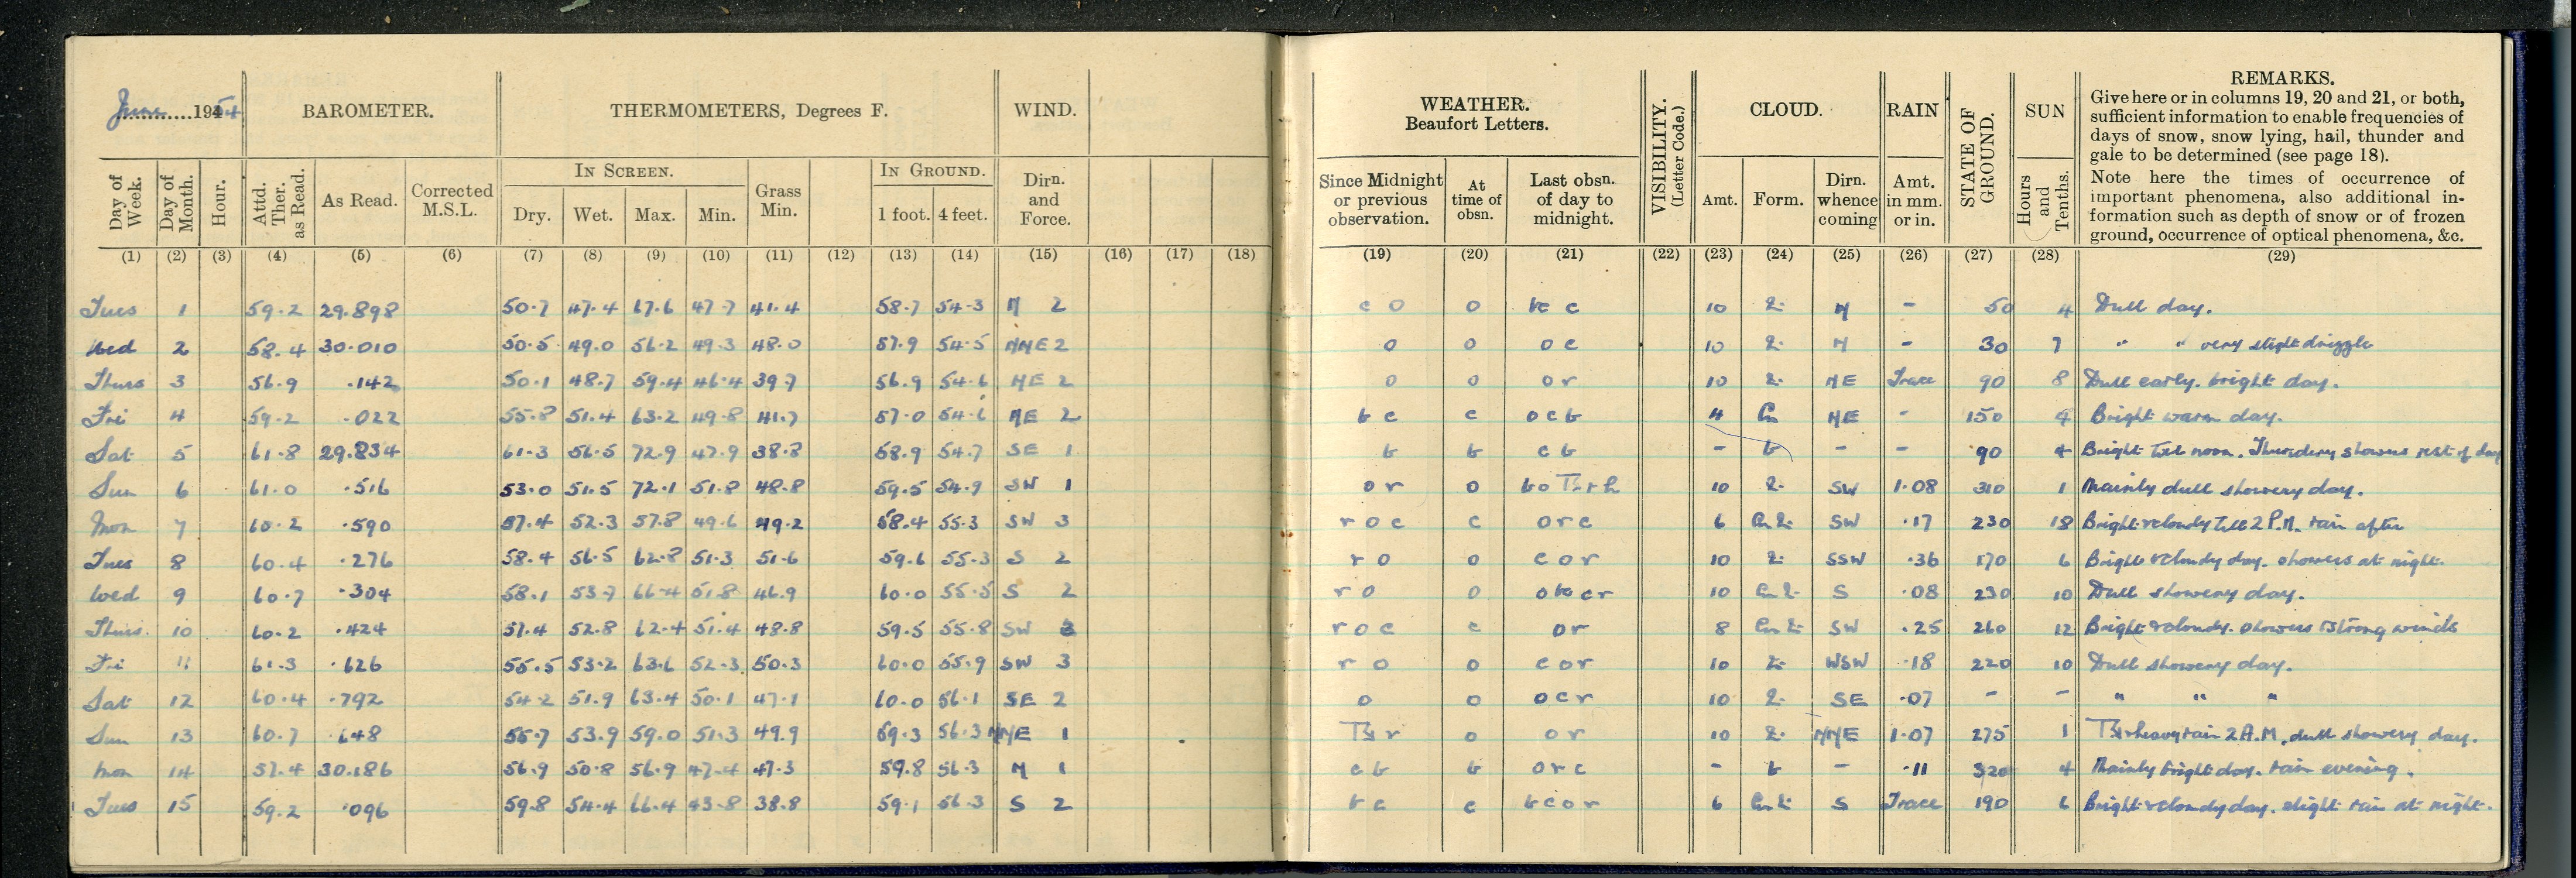 June 1954 BAROMETER. THERMOMETERS, Degrees F. WIND. WEATHER. Beaufort Letters. VISIBILITY. (Letter Code.) CLOUD. RAIN STATE OF GROUND. SUN REMARKS.
Give here or in columns 19, 20 and 21, or both,
sufficient information to enable frequencies of
days of snow, snow lying, hail, thunder and
gale to be determined (see page 18).
Note here the times of occurrence of
important phenomena, also additional in-
formation such as depth of snow or of frozen
ground, occurrence of optical phenomena, &c.
Day of Week. Day of Month. Hour. Attd. Ther. as Read. As Read. Corrected M.S.L. IN SCREEN. Dry. Wet. Max. Min. Grass Min. IN GROUND. 1 foot. 4 feet. Dirn. and Force. Since Midnight or previous observation. At time of obsn. Last obsn. of day to midnight. Amt. Form. Dirn. whence coming Amt. in mm. or in. Hours and Tenths.
(1) (2) (3) (4) (5) (6) (7) (8) (9) (10) (11) (12) (13) (14) (15) (16) (17) (18) (19) (20) (21) (22) (23) (24) (25) (26) (27) (28) (29)
Tues 1 59.2 29.898 50.7 47.4 67.6 47.7 41.4 58.7 54.3 N 2 c o o bc c 10 N - 50 4 Dull day.
Wed 2 58.4 30.010 50.5 49.0 56.2 49.3 48.0 57.9 54.5 NNE 2 o o o c 10 N - 30 7 " " very slight drizzle
Thurs 3 56.9 .142 50.1 48.7 59.4 46.4 39.7 56.9 54.6 NE 2 o o o r 10 NE Trace 90 8 Dull early. bright day.
Fri 4 59.2 .022 55.8 51.4 63.2 49.8 41.7 57.0 54.6 NE 2 b c c o c b 4 Cu NE - 150 4 Bright warm day.
Sat 5 61.8 29.834 61.3 56.5 72.9 47.9 38.8 58.9 54.7 SE 1 b b c b - b - - 90 4 Bright till noon. Thundery showers rest of day
Sun 6 61.0 .516 53.0 51.5 72.1 51.8 48.8 59.5 54.9 SW 1 o r o 10 SW 1.08 310 1 Mainly dull showery day.
Mon 7 60.2 .590 57.4 52.3 57.8 49.6 49.2 58.4 55.3 SW 3 r o c c o r c 6 Cu SW .17 230 18 Bright & cloudy till 2 P.M. rain after
Tues 8 60.4 .276 58.4 56.5 62.8 51.3 51.6 59.6 55.3 S 2 r o o c o r 10 SSW .36 170 6 Bright & cloudy day. showers at night.
Wed 9 60.7 .304 58.1 53.7 66.4 51.8 46.9 60.0 55.5 S 2 r o o o bc c r 10 Cu S .08 230 10 Dull showery day.
Thurs. 10 60.2 .424 57.4 52.8 62.4 51.4 48.8 59.5 55.8 SW 3 r o c c o r 8 Cu SW .25 260 12 Bright & cloudy. showers & strong winds
Fri 11 61.3 .626 55.5 53.2 63.6 52.3 50.3 60.0 55.9 SW 3 r o o c o r 10 WSW .18 220 10 Dull showery day.
Sat 12 60.4 .792 54.2 51.9 63.4 50.1 47.1 60.0 56.1 SE 2 o o o c r 10 SE .07 - - " " "
Sun 13 60.7 .648 55.7 53.9 59.0 51.3 49.9 59.3 56.3 NNE 1 o o r 10 NNE 1.07 275 1 heavy rain 2 A.M. dull showery day.
Mon 14 57.4 30.186 56.9 50.8 56.9 47.4 47.3 59.8 56.3 N 1 c b b o r c - b - .11 320 4 Mainly bright day. rain evening.
Tues 15 59.2 .096 59.8 54.4 66.4 43.8 38.8 59.1 56.3 S 2 b c c b c o r 6 Cu S Trace 190 6 Bright & cloudy day. slight rain at night.